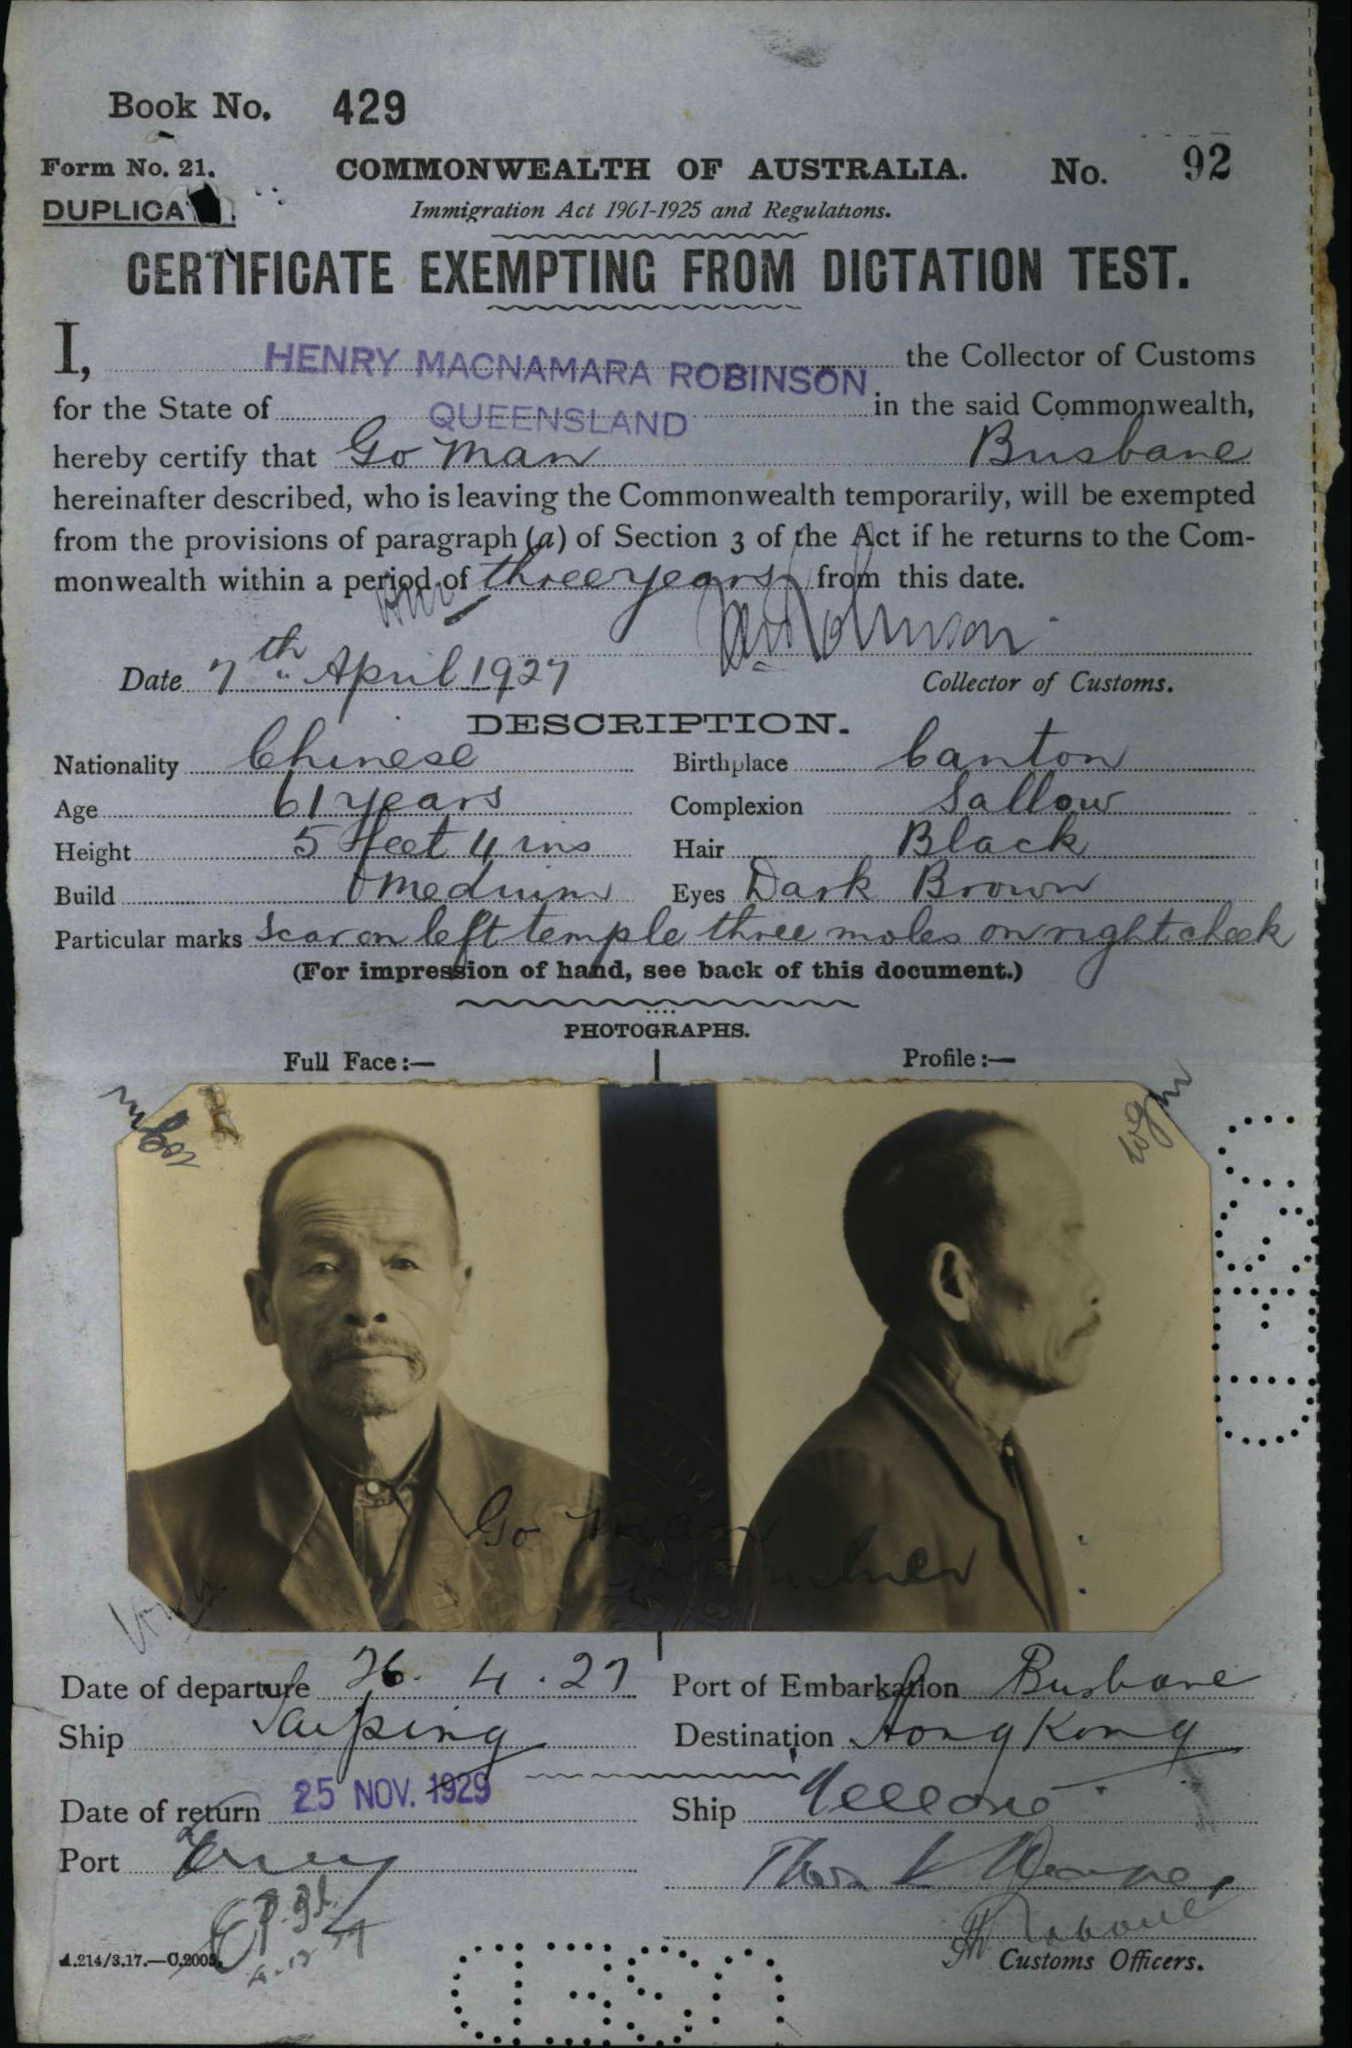 Book No. 429
Form No. 21. COMMONWEALTH OF AUSTRALIA. No. 92
DUPLICA
Immigration Act 1901-1925 and Regulations.
CERTIFICATE EXEMPTING FROM DICTATION TEST.
I, HENRY MACNAMARA ROBINSON the Collector of Customs
for the State of QUEENSLAND in the said Commonwealth,
hereby certify that Go Man Brisbane
hereinafter described, who is leaving the Commonwealth temporarily, will be exempted
from the provisions of paragraph (a) of Section 3 of the Act if he returns to the Com-
monwealth within a period of three years from this date.
Date 7th April 1927 Collector of Customs.
DESCRIPTION.
Nationality Chinese Birthplace Canton
Age 61 years Complexion Sallow
Height 5 feet 4 ins Hair Black
Build Medium Eyes Dark Brown
Particular marks Scar on left temple three moles on right cheek
(For impression of hand, see back of this document.)
PHOTOGRAPHS.
Full Face:— Profile:—
wgm
Go Man
Date of departure 26. 4. 27 Port of Embarkation Brisbane
Ship Taiping Destination Hong Kong
Date of return 25 NOV. 1929 Ship
Port
A.214/3.17.—C.2005. Customs Officers.